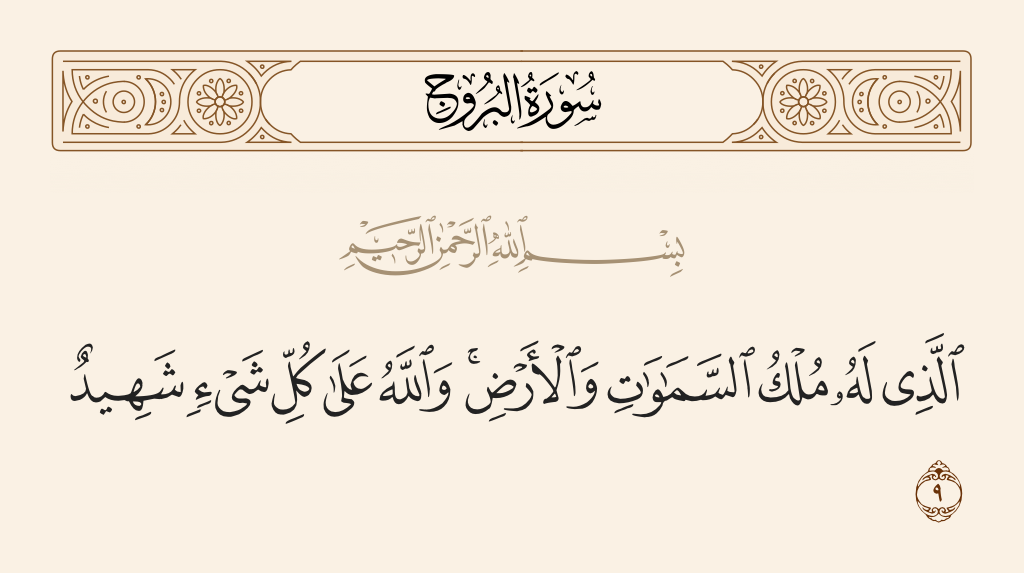 سُورَةُ البُرُوجِ
بِسْمِ ٱللَّهِ ٱلرَّحْمَٰنِ ٱلرَّحِيمِ
ٱلَّذِى لَهُۥ مُلْكُ ٱلسَّمَٰوَٰتِ وَٱلْأَرْضِ ۚ وَٱللَّهُ عَلَىٰ كُلِّ شَىْءٍ شَهِيدٌ
٩